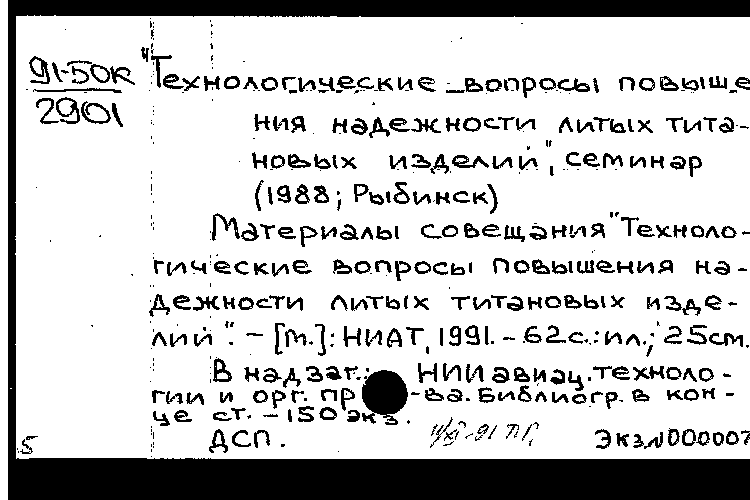 91-50К
2901
"Технологические вопросы повыше
ния надежности литых тита-
новых изделий", семинар
(1988; Рыбинск)
Материалы совещания "Техноло-
гические вопросы повышения на-
дежности литых титановых изде-
лий". - [М.]: НИАТ, 1991. - 62с.: ил.; 25см.
В надзаг.: НИИ авиац. техноло-
гии и орг. пр -ва. Библиогр. в кон-
це ст. - 150 экз.
ДСП.
Экз.N000007
5